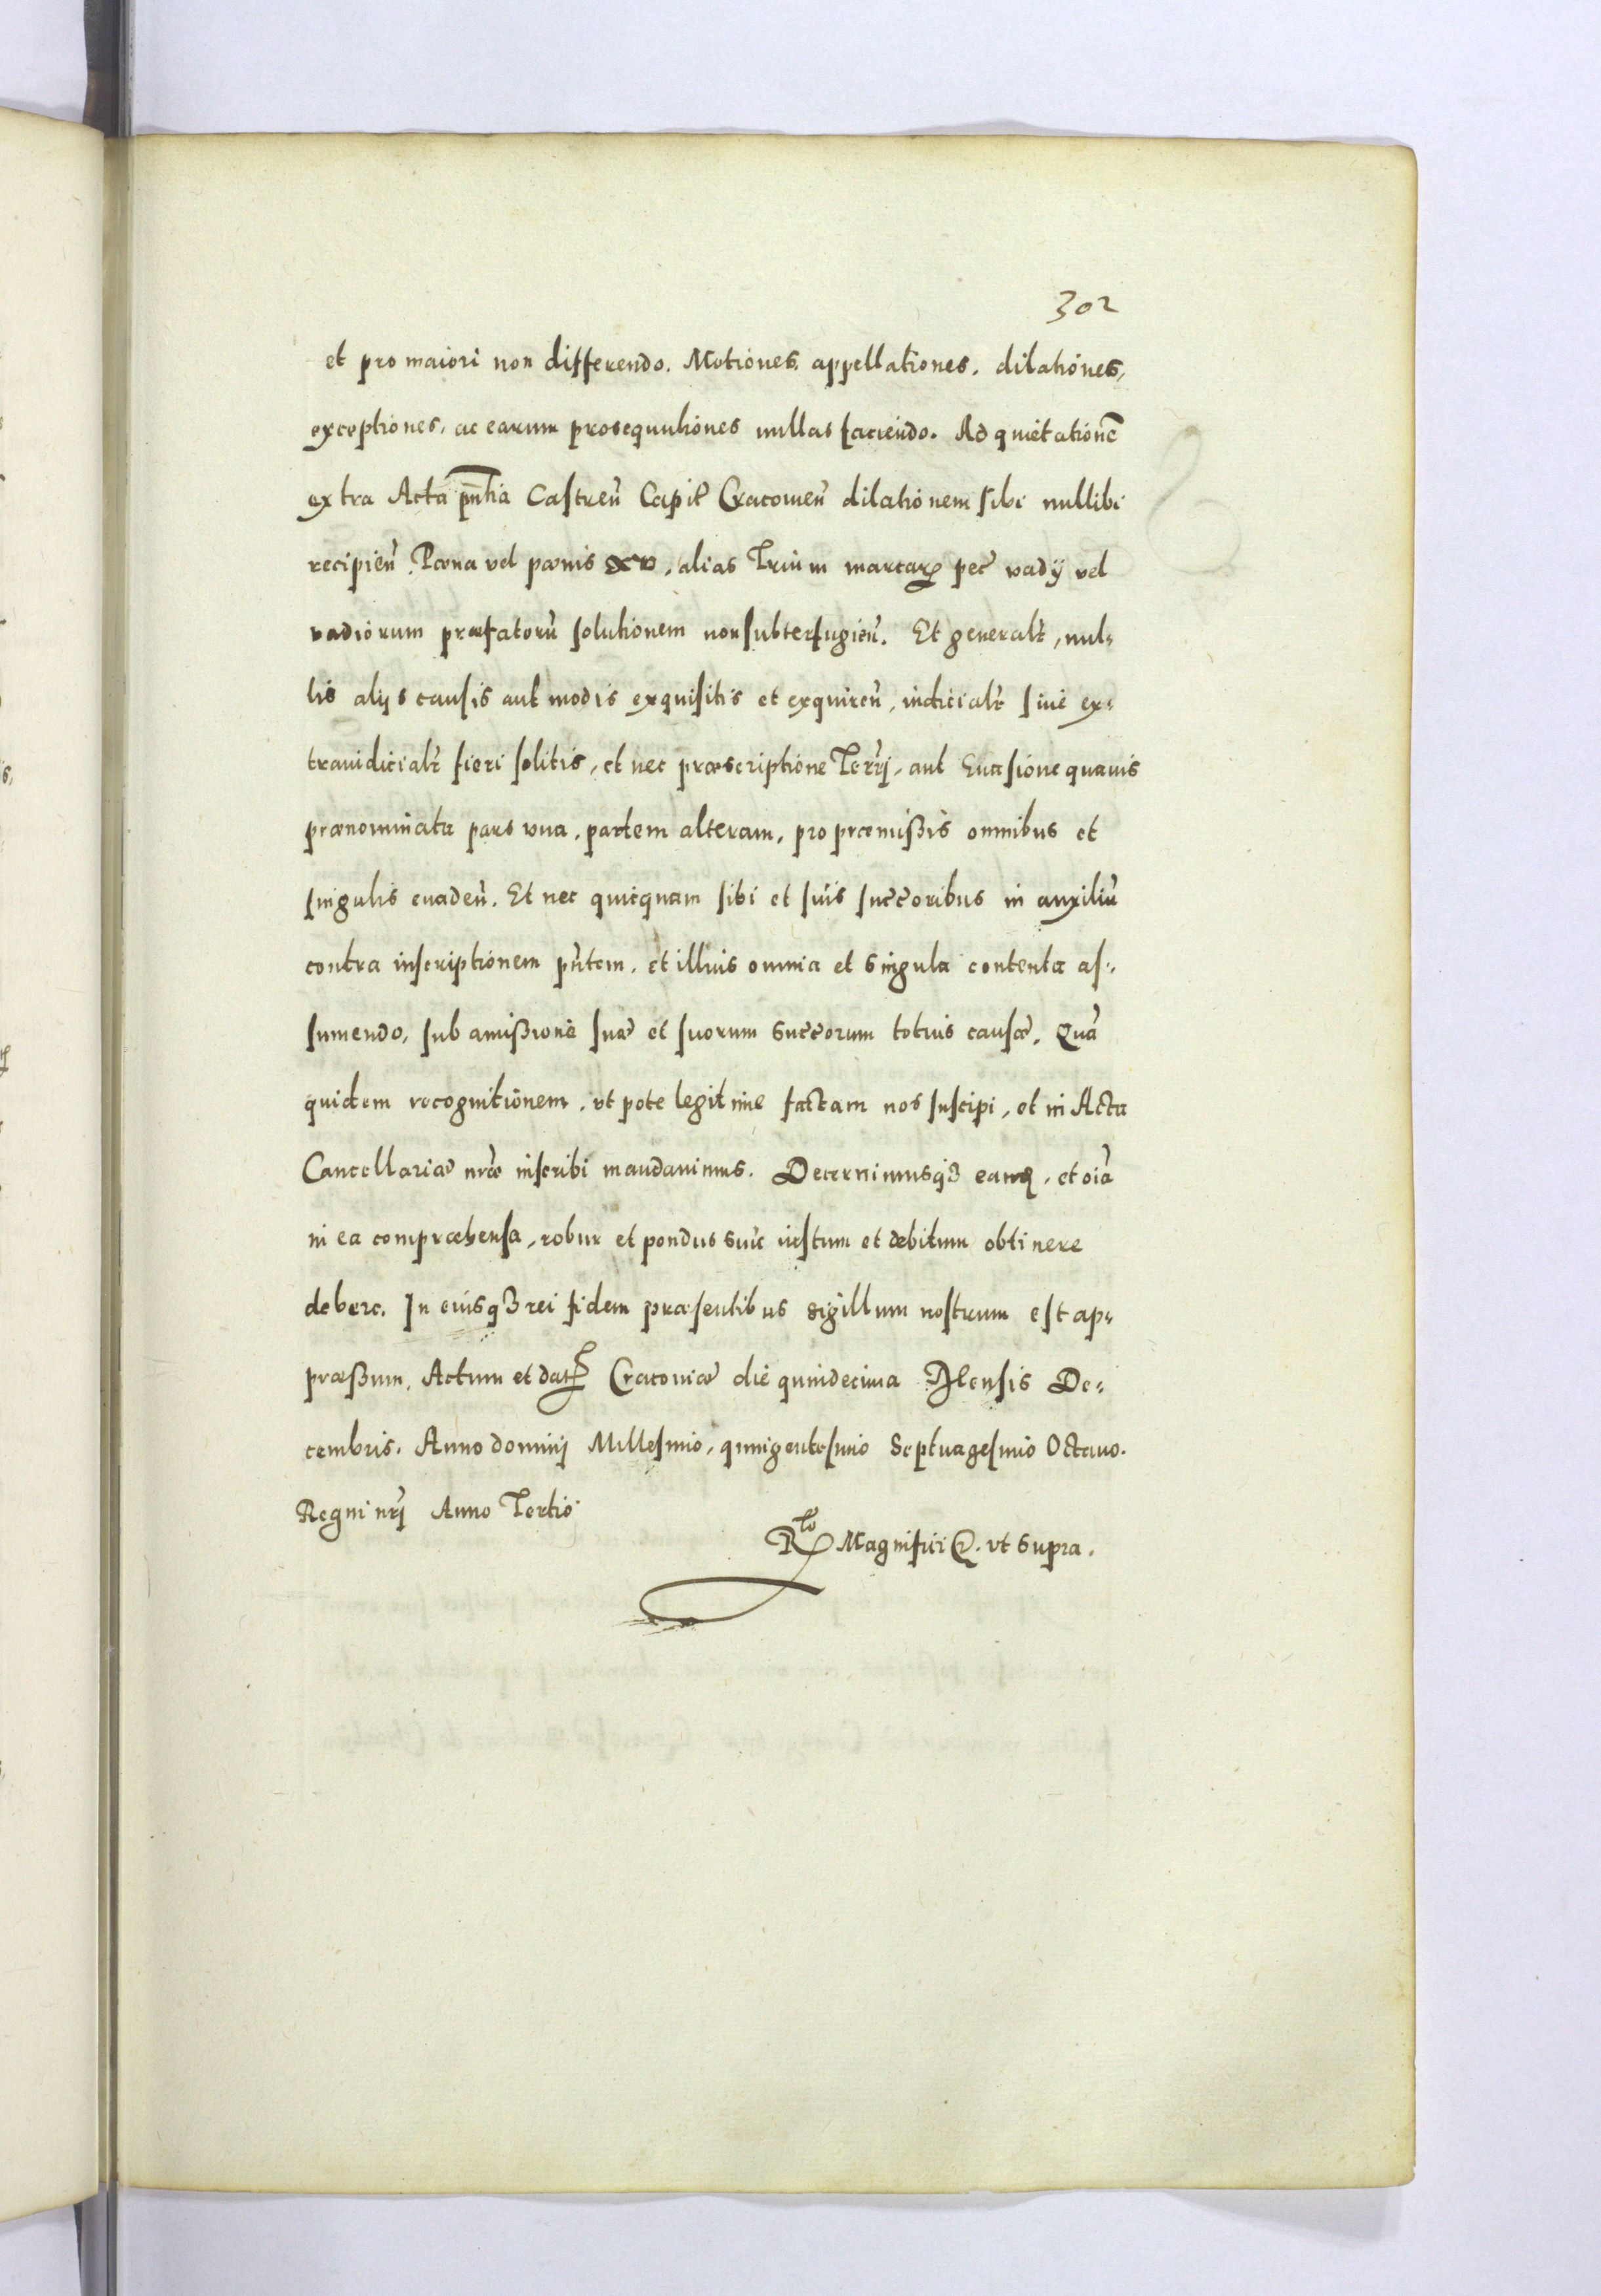 302
et pro maiori non differendo. Motiones, appellationes, dilationes,
exceptiones, ac earum prosequutiones nullas faciendo. Ad quietationē
extra Acta pn̄tia Castren̄ Capit̄ Cracouien̄ dilationem sibi nullibi
recipien̄. Pœna vel pœnis xv, alias Trium marcarꝝ pec̄ vadij vel
vadiorum præfatorū solutionem non subterfugien̄. Et generalr̄, nul-
lis alijs causis aut modis exquisitis et exquiren̄, iudicialr̄ siue ex-
traiudicialr̄ fieri solitis, et nec præscriptione Terr̄j, aut Euasione quauis
prænominata pars vna, partem alteram, pro præmißis omnibus et
singulis euaden̄. Et nec quicquam sibi et suis succ̄oribus in auxiliū
contra inscriptionem pn̄tem, et illius omnia et singula contenta as-
sumendo, sub amißione suæ et suorum succ̄orum totius causæ. Quā
quidem recognitionem, vt pote legitime factam nos suscipi, et in Acta
Cancellariæ nr̄æ inscribi mandauimus. Decernimusqꝫ eamꝗ, et oīa
in ea compræhensa, robur et pondus suū iustum et debitum obtinere
debere. In cuiusqꝫ rei fidem præsentibus sigillum nostrum est ap-
præßum. Actum et datꝝ Cracouiæ die quindecima Mensis De-
cembris. Anno dominj Millesimo, quingentesimo Septuagesimo Octauo.
Regni nr̄j Anno Tertio
Rto Magnifici &. vt supra.